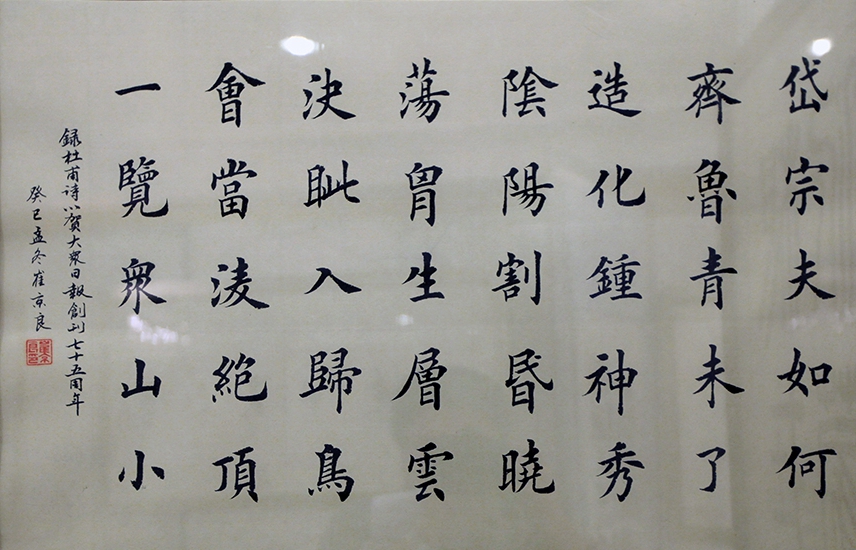 岱宗夫如何
齊魯青未了
造化鍾神秀
陰陽割昬曉
蕩胷生層雲
決眦入歸鳥
會當淩絶頂
一覽衆山小
録杜甫詩以賀大衆日報創刊七十五周年
癸巳孟冬崔京良